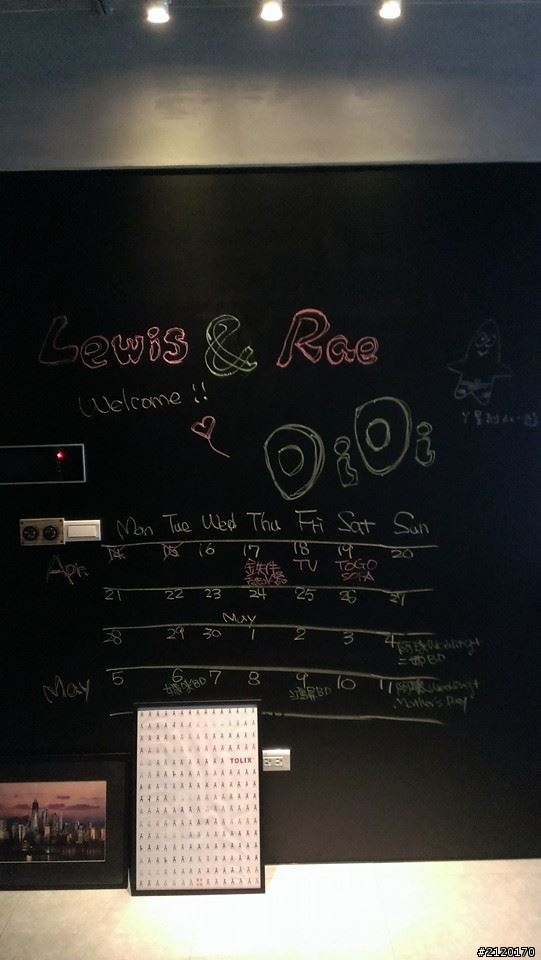 Lewis & Rae
Welcome !!
OiOi
Mon Tue Wed Thu Fri Sat Sun
Apr. 14 15 16 17 18 19 20
TV TOGO
SOFA
21 22 23 24 25 26 27
May
28 29 30 1 2 3 4
BD
May 5 6 7 8 9 10 11
BD BD
Mother's Day
TOLIX
#2120170